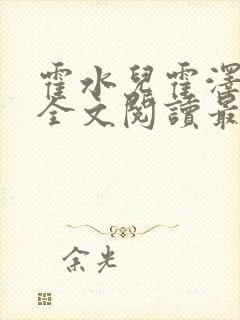 霍水兒霍澤
全文閱讀最
余光